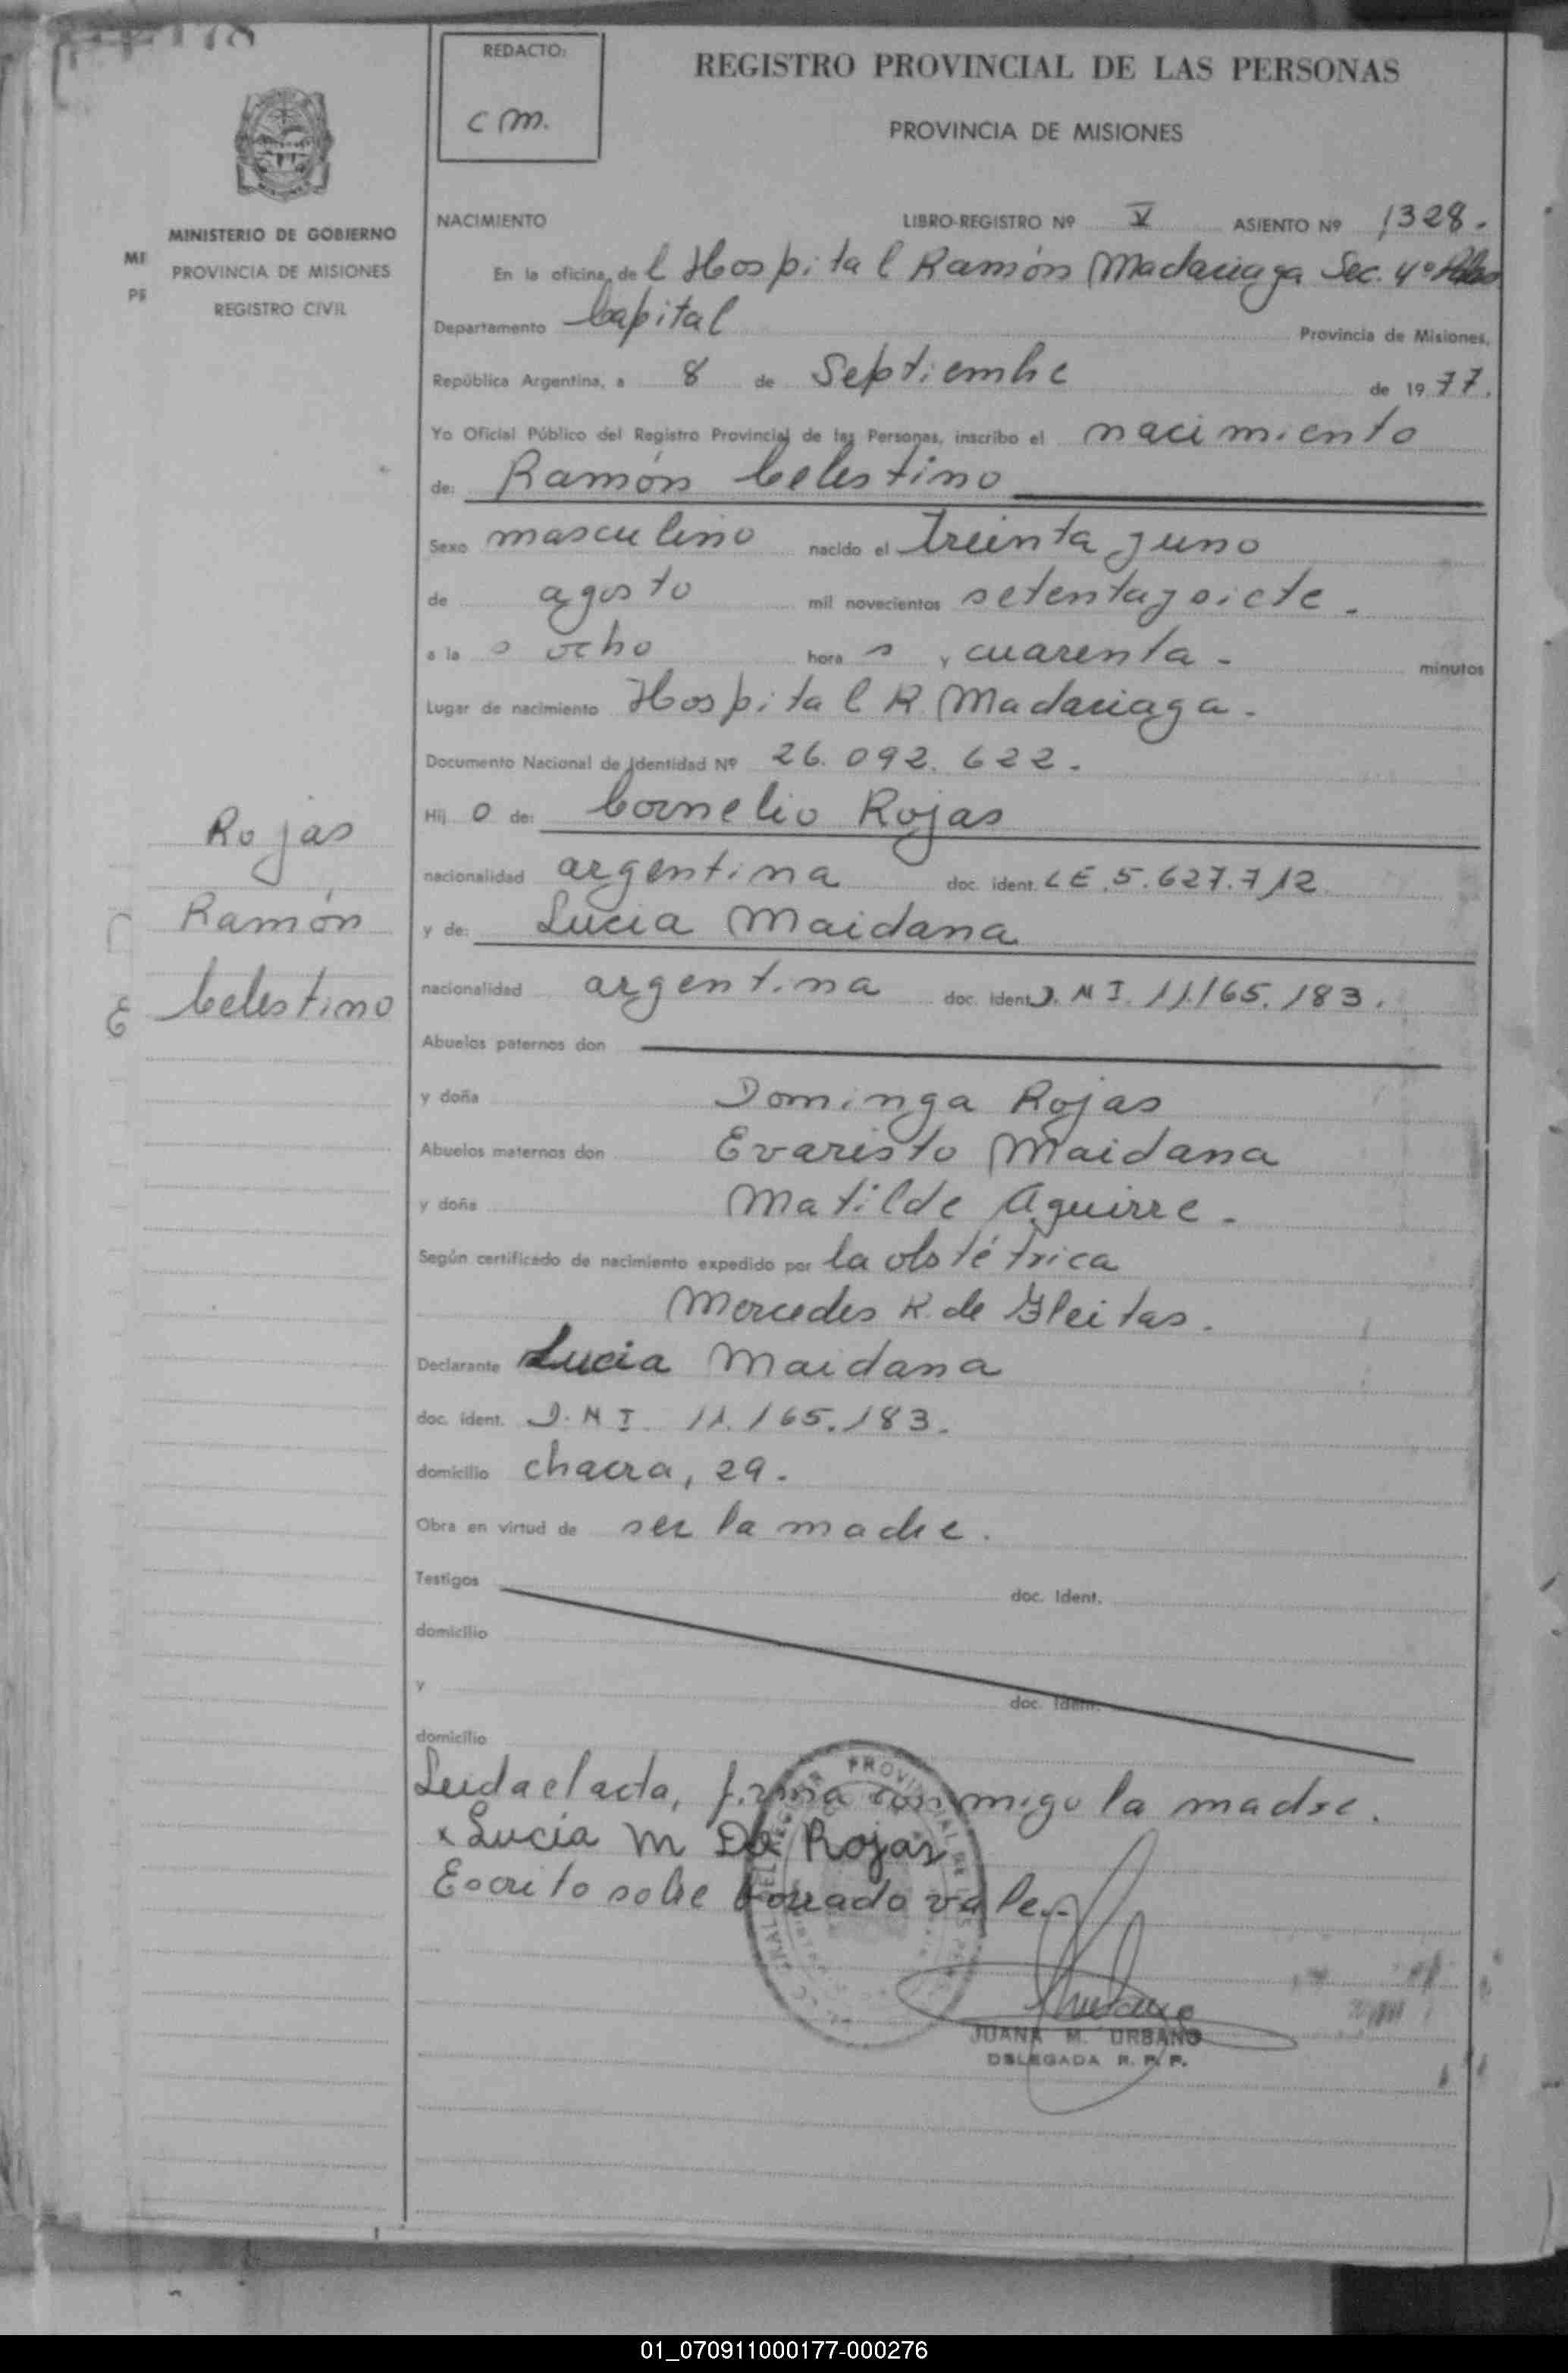 REDACTO:
c m.
REGISTRO PROVINCIAL DE LAS PERSONAS
PROVINCIA DE MISIONES
MINISTERIO DE GOBIERNO
PROVINCIA DE MISIONES
REGISTRO CIVIL
MI
PR
NACIMIENTO LIBRO-REGISTRO Nº V ASIENTO Nº 1328.
En la oficina de l Hospital Ramón Madariaga Sec. 4º
Departamento Capital Provincia de Misiones,
República Argentina, a 8 de Septiembre de 1977.
Yo Oficial Público del Registro Provincial de las Personas, inscribo el nacimiento
de: Ramón Celestino
Sexo masculino nacido el treinta y uno
de agosto mil novecientos setenta y siete.
a la s ocho hora s y cuarenta - minutos
Lugar de nacimiento Hospital R. Madariaga -
Documento Nacional de Identidad Nº 26.092.622.
Hij o de: Cornelio Rojas
nacionalidad argentina doc. ident. LE.5.627.712
y de: Lucia Maidana
nacionalidad argentina doc. ident. D.N I. 11.165.183.
Rojas
Ramón
Celestino
Abuelos paternos don
y doña Dominga Rojas
Abuelos maternos don Evaristo Maidana
y doña Matilde Aguirre -
Según certificado de nacimiento expedido por la obstétrica
Mercedes R. de Gleitas.
Declarante Lucia Maidana
doc. ident. D.N I. 11.165.183.
domicilio chacra, 29.
Obra en virtud de ser la madre.
Testigos doc. Ident.
domicilio
y doc. Ident.
domicilio
Leida el acta, firma conmigo la madre.
x Lucia M De Rojas
Escrito sobre borrado vale.-
JUANA M. URBANO
DELEGADA R. P. P.
01_070911000177-000276